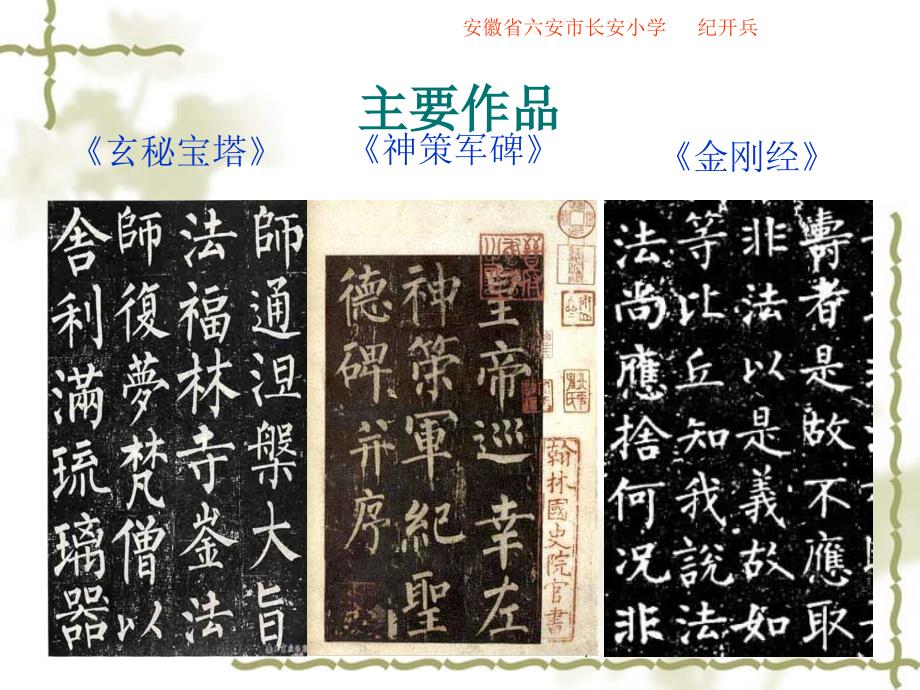 安徽省六安市长安小学 纪开兵
主要作品
《玄秘宝塔》
《神策军碑》
《金刚经》
師通涅槃大旨
法福林寺崟法
師復夢梵僧以
舍利滿琉璃器
翰林國史院官書
皇帝巡幸左
神策軍紀聖
德碑并序
壽者是故不應取
非法以是義故如
等比丘知我說法
法尚應捨何況非